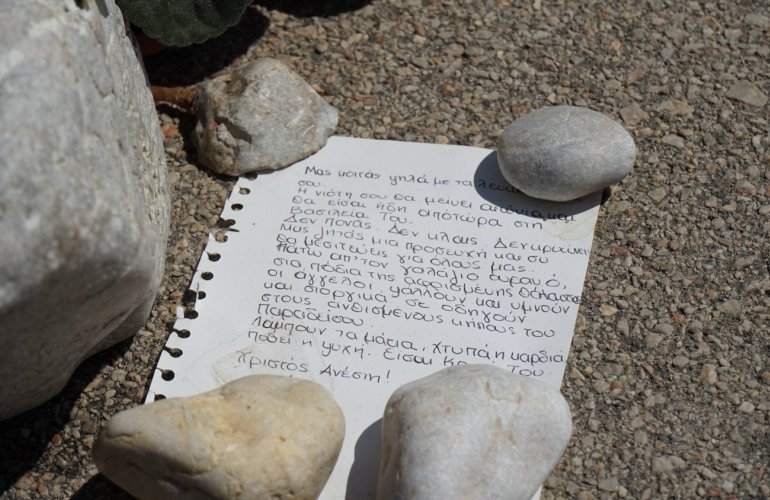 Μας κοιτάς ψηλά με τα λευκά
σου.
Η νιότη σου θα μείνει αιώνια και
θα είσαι ήδη από τώρα στη
Βασιλεία Του.
Δεν πονάς. Δεν κλαις. Δεν κρυώνεις
Μας ζητάς μια προσευχή και συ
θα μεσιτεύεις για όλους μας.
Πάνω απ' τον γαλάζιο ουρανό,
στα πόδια της αφρισμένης θάλασσας
οι άγγελοι ψάλλουν και υμνούν
και στοργικά σε οδηγούν
στους ανθισμένους κήπους του
Παραδείσου.
Λάμπουν τα μάτια, χτυπά η καρδιά
ποθεί η ψυχή. Είσαι Του
Χριστός Ανέστη!